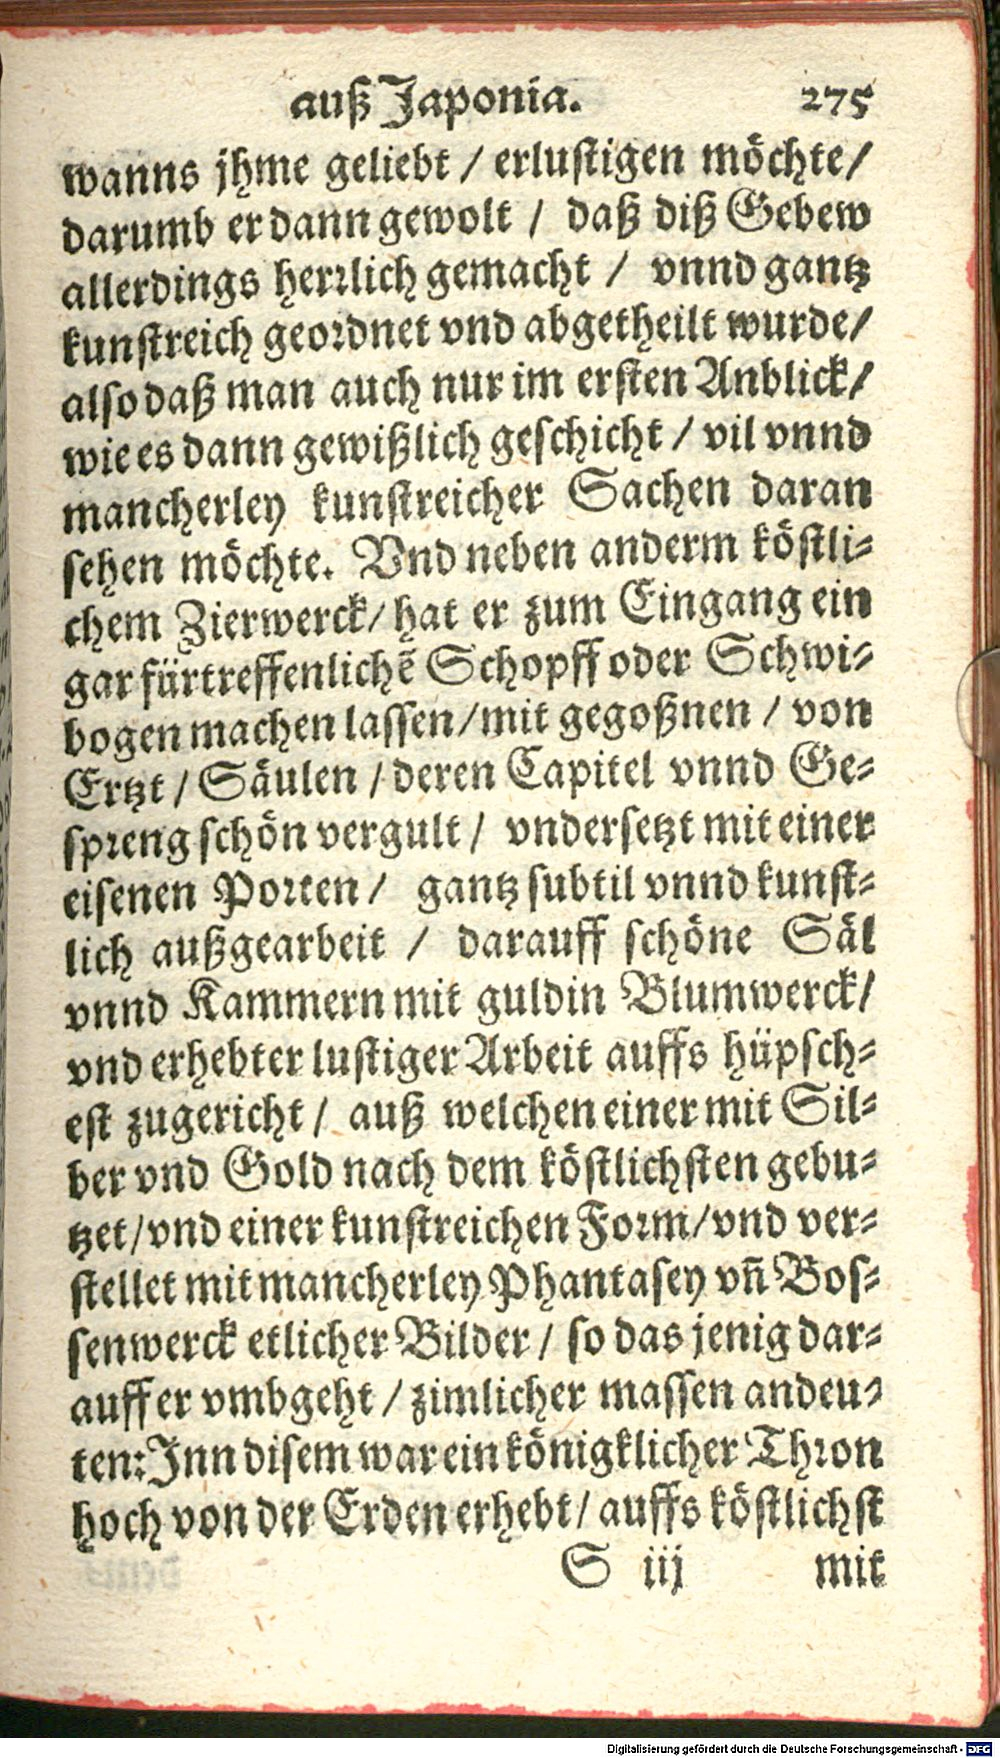 auß Japonia. 275
wanns jhme geliebt / erlustigen möchte/
darumb er dann gewolt / daß diß Gebew
allerdings herrlich gemacht / vnnd gantz
kunstreich geordnet vnd abgetheilt wurde/
also daß man auch nur im ersten Anblick/
wie es dann gewißlich geschicht / vil vnnd
mancherley kunstreicher Sachen daran
sehen möchte. Vnd neben anderm köstli-
chem Zierwerck/ hat er zum Eingang ein
gar fürtreffenlichẽ Schopff oder Schwi-
bogen machen lassen/mit gegoßnen / von
Ertzt / Säulen / deren Capitel vnnd Ge-
spreng schön vergult / vndersetzt mit einer
eisenen Porten / gantz subtil vnnd kunst-
lich außgearbeit / darauff schöne Säl
vnnd Kammern mit guldin Blumwerck/
vnd erhebter lustiger Arbeit auffs hüpsch-
est zugericht / auß welchen einer mit Sil-
ber vnd Gold nach dem köstlichsten gebu-
tzet/vnd einer kunstreichen Form/vnd ver-
stellet mit mancherley Phantasey vñ Bos-
senwerck etlicher Bilder / so das jenig dar-
auff er vmbgeht / zimlicher massen andeu-
ten: Inn disem war ein königklicher Thron
hoch von der Erden erhebt / auffs köstlichst
S iij mit
Digitalisierung gefördert durch die Deutsche Forschungsgemeinschaft - DFG